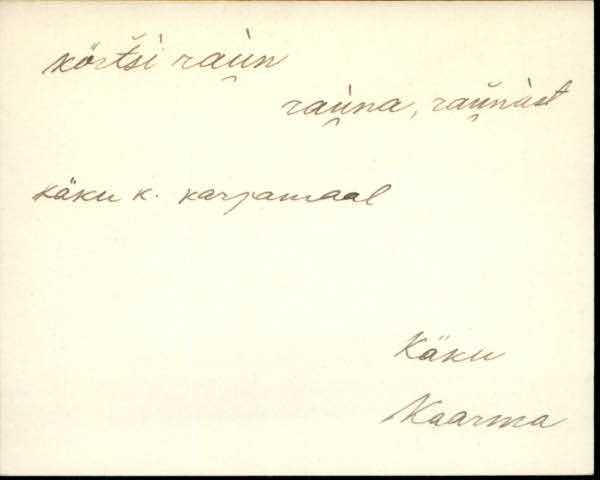 kõrtsi raùn
raùna, raùnàst
käku k. karjamaal
Käku
Kaarma